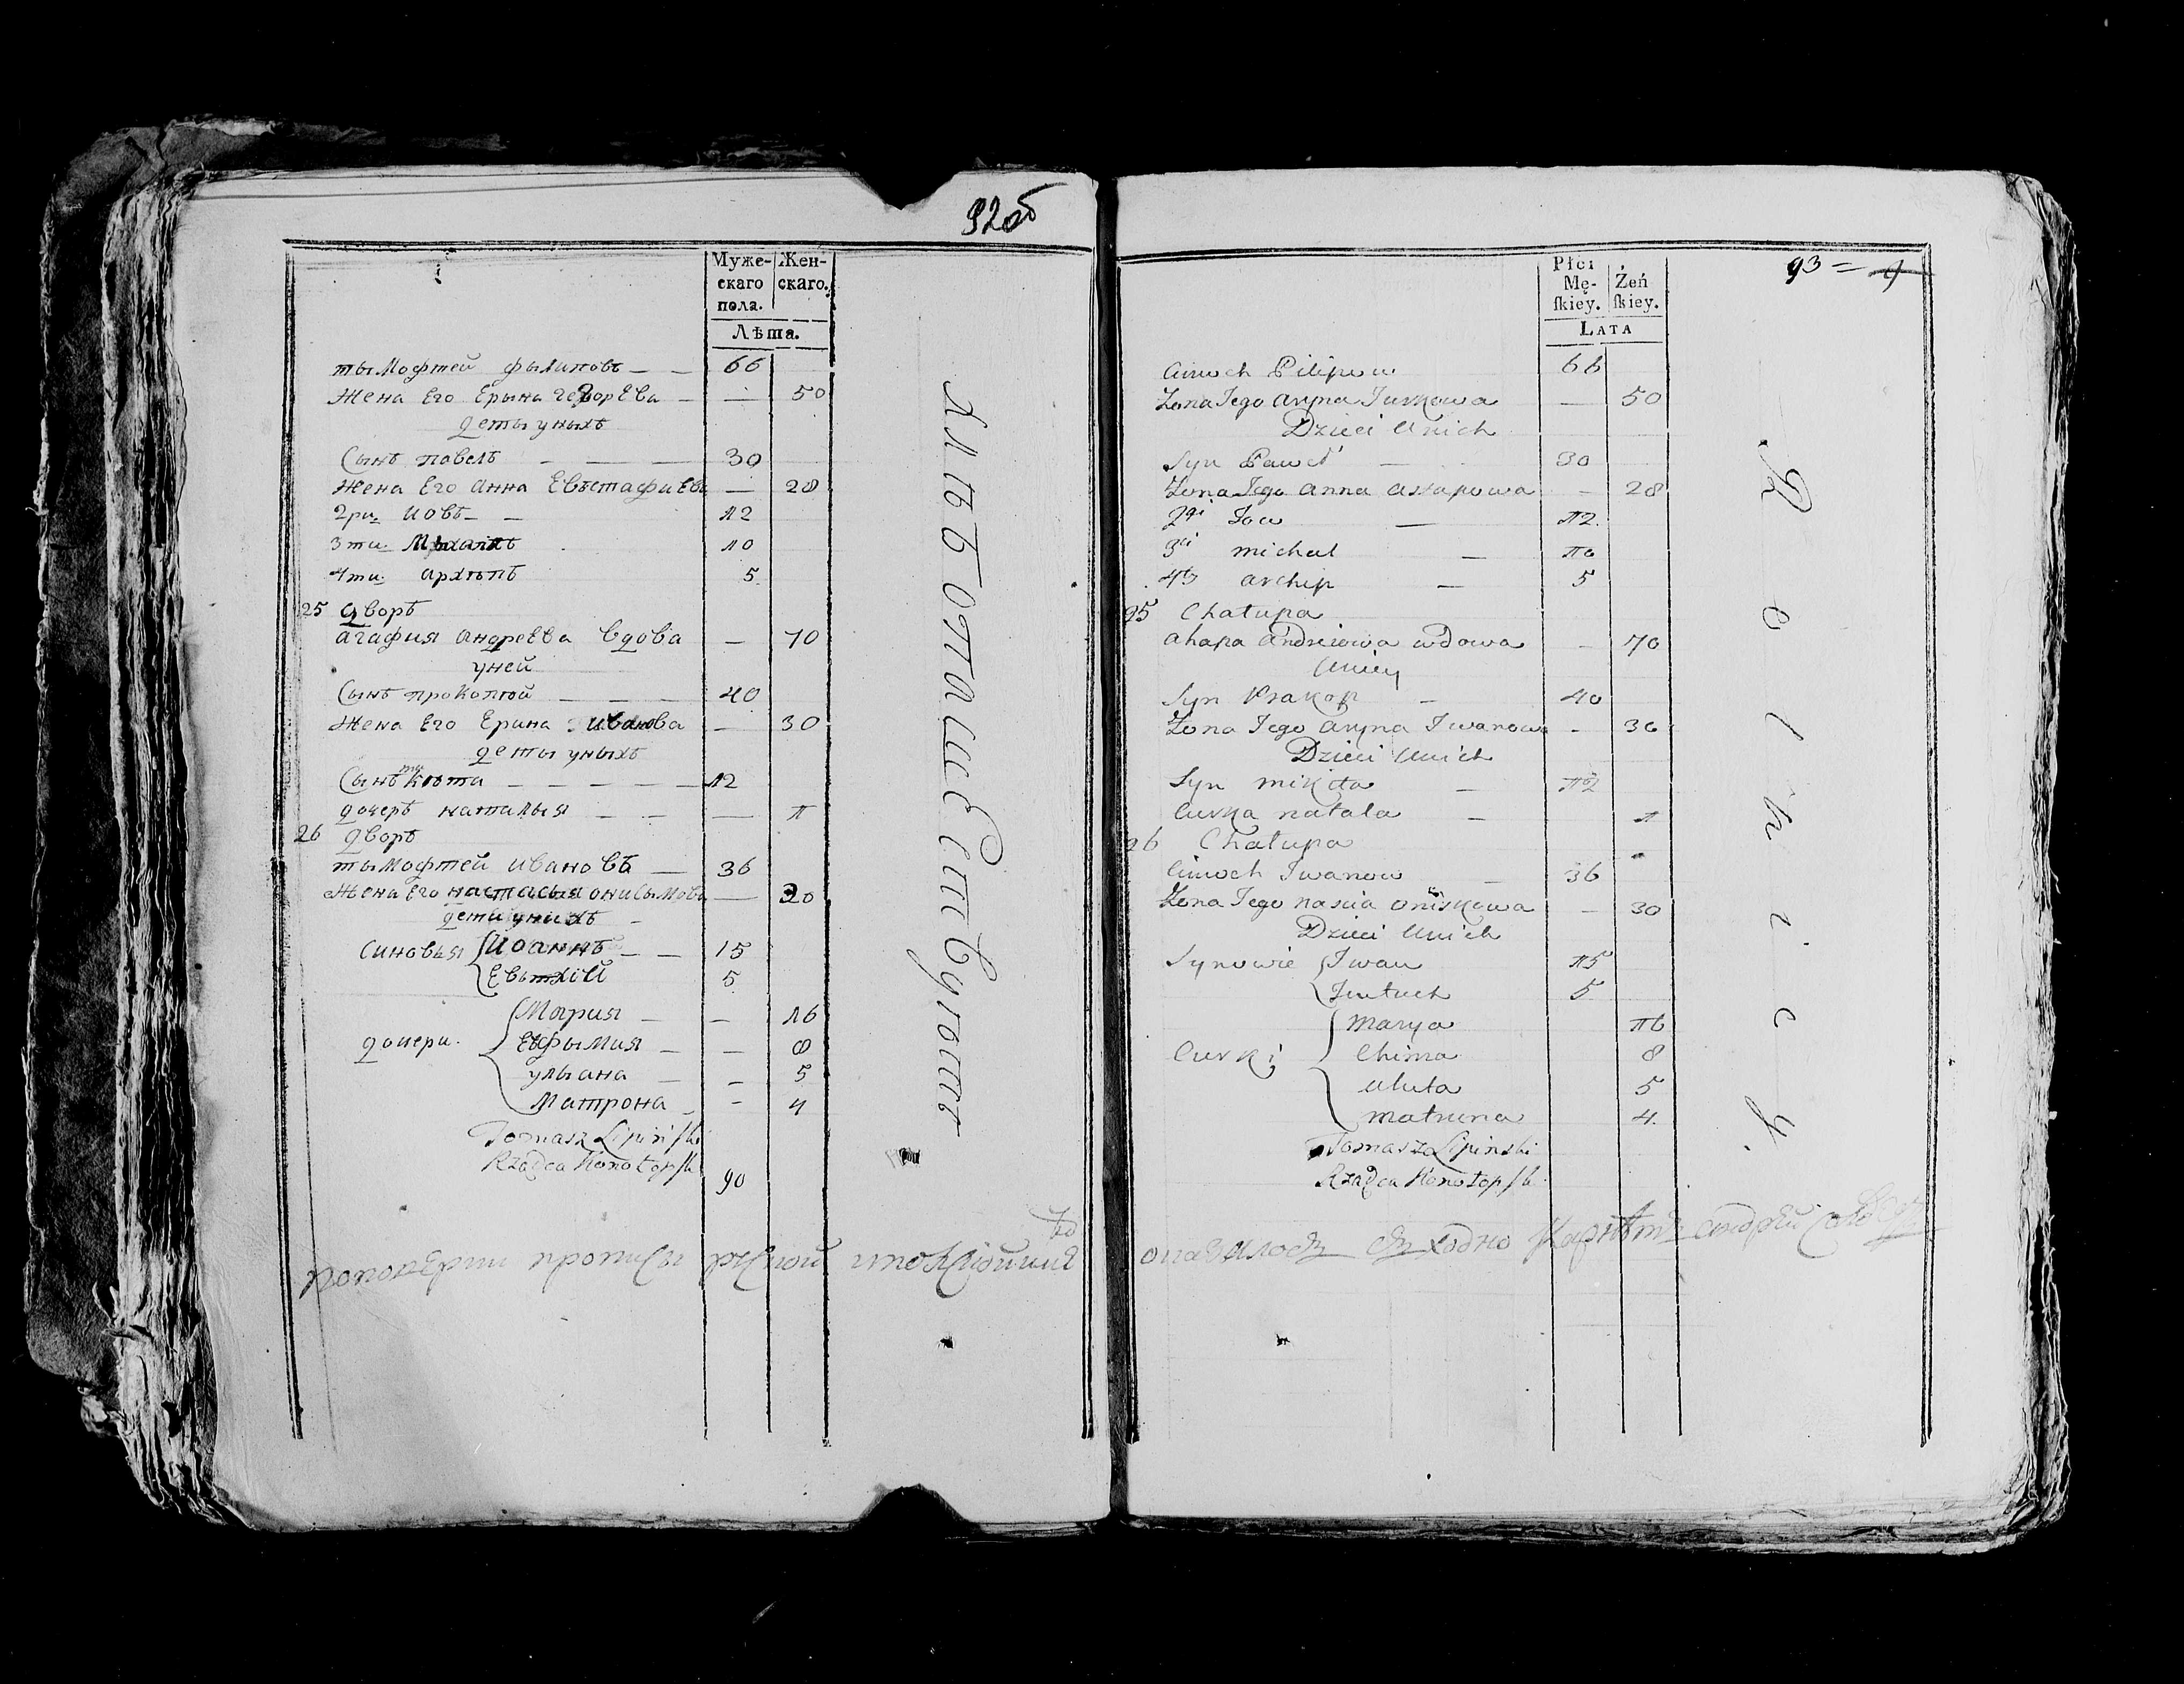 92об
Муже- Жен-
скаго скаго.
пола.
Лѣта.
тыМофтей фылиповъ — — 66
Жена Его Ерына ЕвЫ — — 50
деты уныхъ
Сынъ павелъ — — — 30
Жена Его Анна Евъстафиева — 28
2ри: иовъ — — 12
3ти: Михаилъ 10
4ти: архыпъ 5
25 дворъ
агафия андреева вдова — 70
уней
Сынъ прокопой — — — 40
Жена Его Ерина Иванова — 30
деты уныхъ
Сынъ Микыта — — — — — 12
дочеръ наталыя — — — 1
26 дворъ
тыМофтей ивановъ — 36
Жена Его настасыя онисымова — 20
дети унихъ —
Синовья Иоаннъ — — 15
Евътхій 5
Мария — — 16
дочери. Ефымия — — 8
ульана — — 5
Матрона — — 4
Tomasz Lipińſki
Rządca Konotopſki
90
дЛѣбопашЕствуютъ
93 = 9
Płci
Mę- Żeń
ſkiey. ſkiey.
Lata
Cimoch Pilipow 66
Żona Jego Aryna Jurkowa — 50
Dzieci Unich
Syn Paweł — 30
Żona Jego Anna Astapowa — 28
2gi Jow — 12
3ci michał — 10
4ty archip — 5
25 Chałupa
ahapa Andreiowa wdowa — 70
Uniey
Syn Prakop — 40
Żona Jego Aryna Iwanowa — 30
Dzieci Unich
Syn mikita — 12
Curka natala — 1
26 Chałupa
Cimoch Iwanow — 36
Żona Jego nascia oniskowa — 30
Dzieci Unich
Synowie Iwan 15
Jeutuch 5
Marya 16
Curki Chima 8
Uluta 5
matruna 4.
Tomasz Lipinski
Rządca Konotopſki
Rolnicy.
оказалось сходно